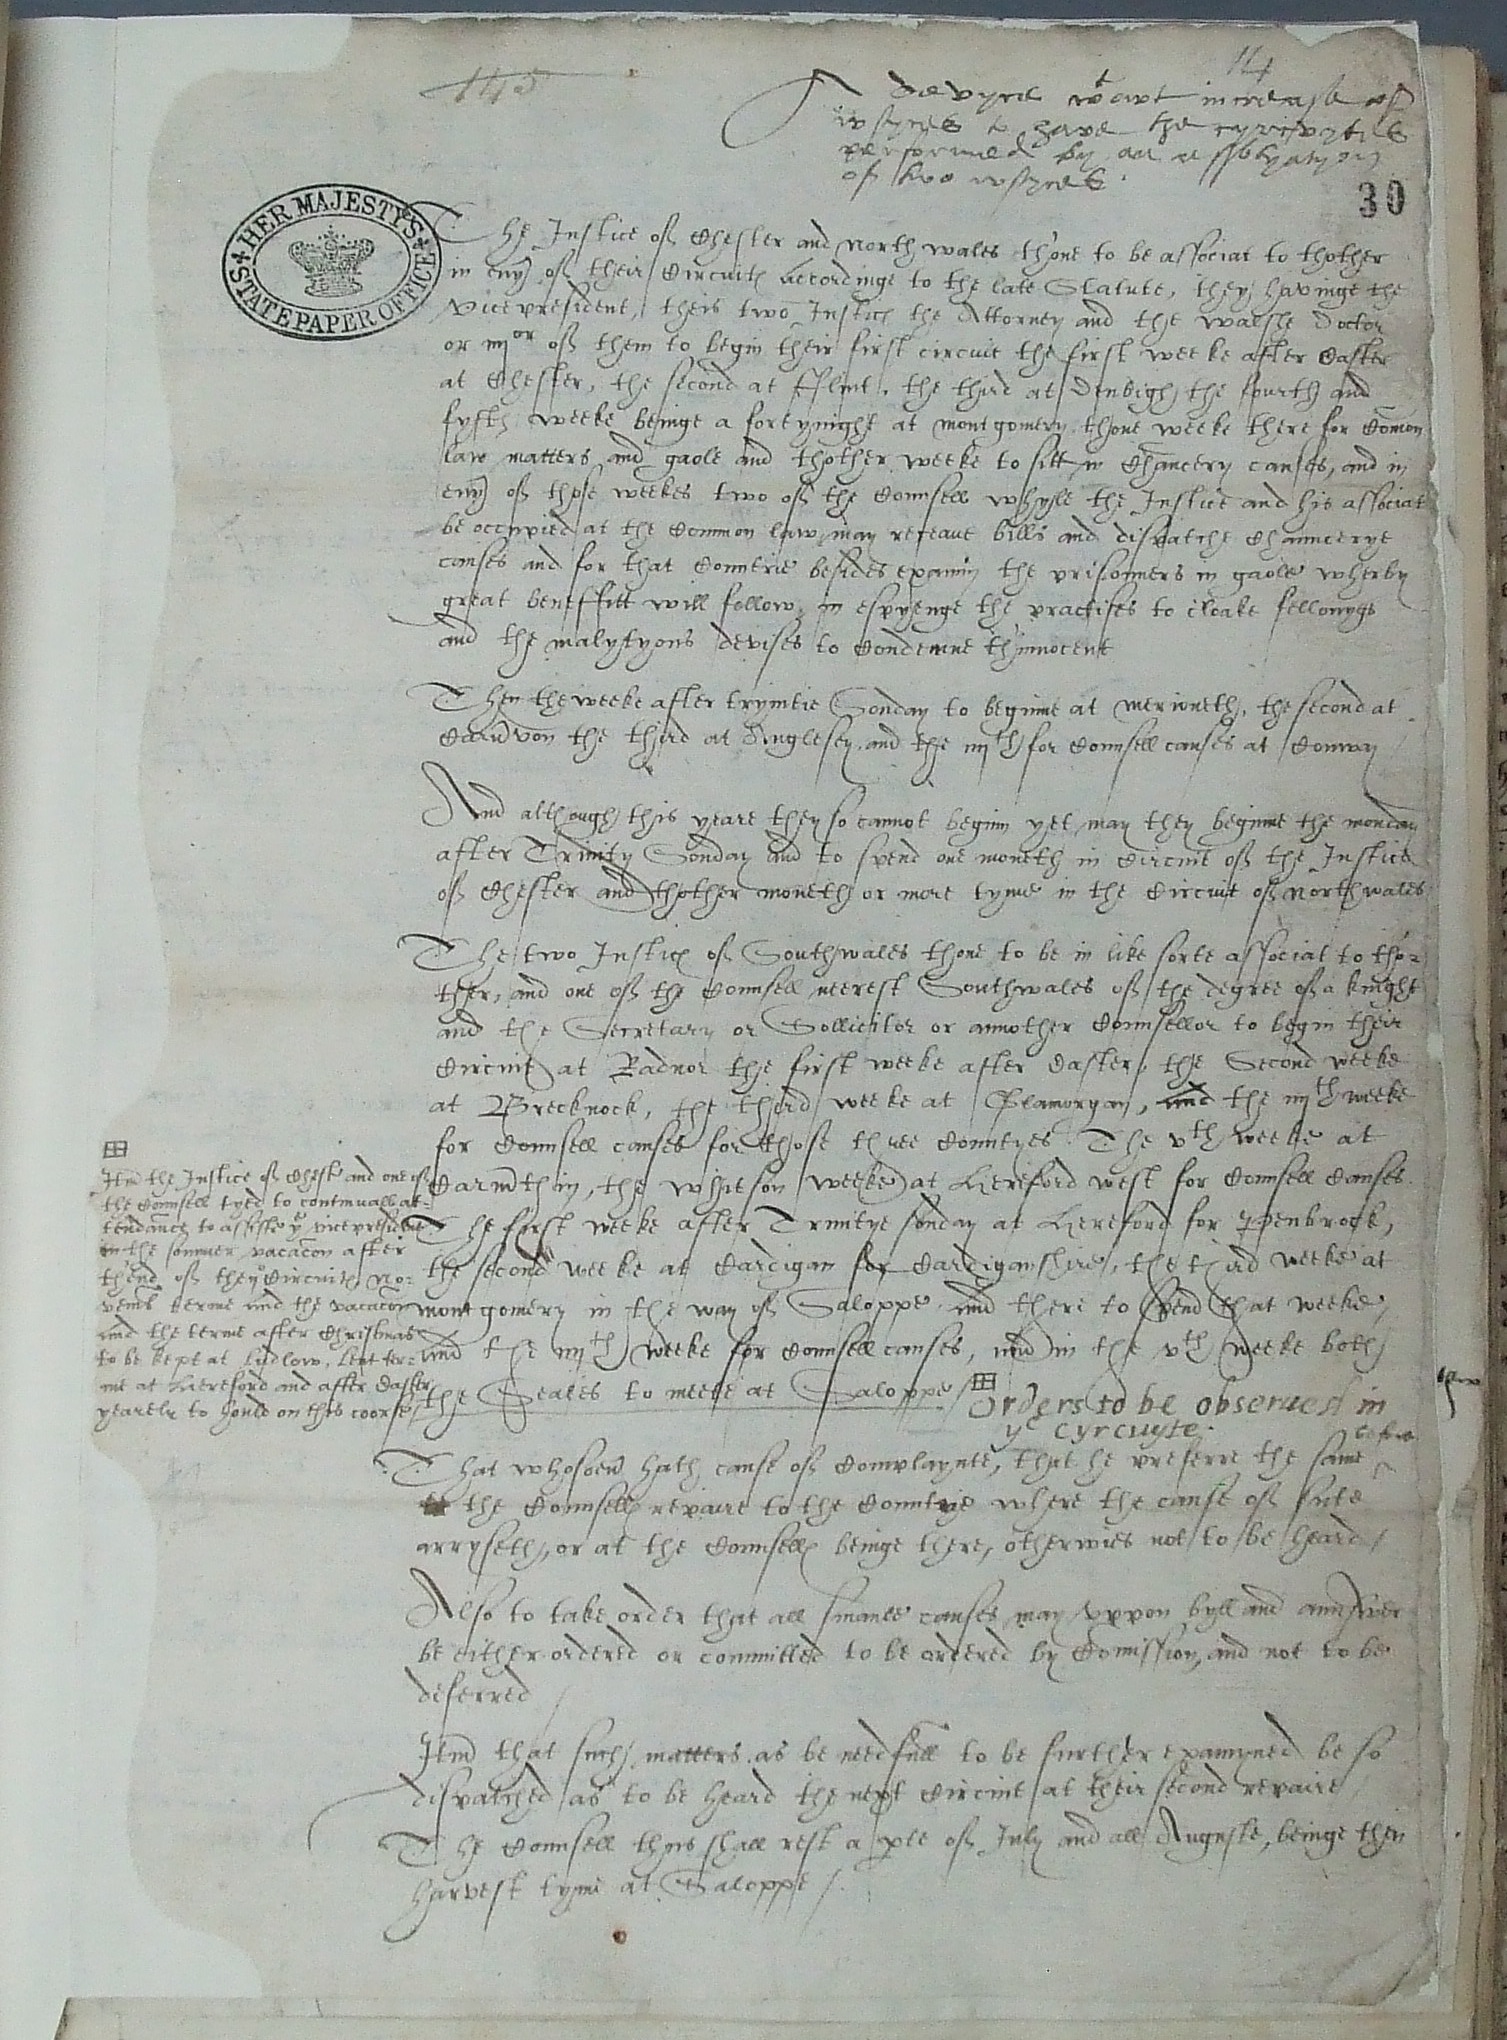 145
14
A devyce wtowt increase of
Justyces to have the cyrcuytes
performed by an assosyatyon
of two Justyces
30
HER MAJESTY'S STATE PAPER OFFICE
The Justice of Chester and North wales thone to be associat to thother
in eny of their Circuit accordinge to the late Statute, they havinge the
vicepresident, theis two Justic the Attorney and the walshe Doctor
or iijor of them to begin their first circuit the first weeke after Easter
at Chester, the second at Fflint, the third at Denbigh the fourth and
fyfth weeke beinge a fortynight at montgomery thone weeke there for Comon
law matters and gaole and thother weeke to sitt in Chancery causes, and in
eny of those weekes two of the Counsell whyle the Justice and his associat
be occupied at the Common law may receave bills and dispatche Chauncerye
causes and for that Countrie besides examin the prisonners in gaole wherby
great beneffitt will follow in espyenge the practises to cloake fellonyes
and the malytyous devises to Condemne thinnocent
Then the weeke after trynitie Sonday to beginne at merioneth, the second at
Carnvon the third at Anglesey and the iiijth for Counsell causes at Conway
And although this yeare they so cannot beginn yet may they beginne the monday
after Trinity Sonday and to spend one moneth in Circuit of the Justice
of Chester and thother moneth or more tyme in the Circuit of Northwales
The two Justic of Southwales thone to be in like sorte associat to tho-
ther, and one of the Counsell neerest Southwales of the degree of a knight
and the Secretary or Sollicitor or annother Counsellor to begin their
Circuit at Radnor the first weeke after Easter, the Second weeke
at Brecknock, the therd weeke at Glamorgan, and the iiijth weeke
for Counsell causes for those three Countyes. The vth weeke at
Carmthin, the whitson weeke at Hereford west for Counsell Causes.
The first weeke after Trinitye sonday at Hereford for Penbrock,
the second weeke at Cardigan for Cardiganshire, the third weeke at
montgomery in the way of Saloppe and there to spend that weeke
and the iiijth weeke for Counsell causes, and in the vth weeke both
the Seales to meete at Saloppe /
Itm the Justice of Chest and one of
the Counsell tyed to contynuall at-
tendance to assiste ye vicepresident
in the sommer vacacon after
thend of theyr Circuit, No-
vemb terme and the vacacon
and the terme after Christmas
to be kept at Ludlow, Lent ter-
me at Hereford and after Easter
yearely to hould on this coorse /
Orders to be observed in
ye cyrcuyte.
before
That whosoevr hath cause of Complaynte, that he preferre the same
the Counsell repaire to the Countrie where the cause of sute
arryseth, or at the Counsell beinge there, otherwies not to be heard /
Also to take order that all smaule causes may uppon byll and aunswer
be either ordered or committed to be ordered by Comission, and not to be
deferred /
Itm that such matters as be needfull to be further examyned be so
dispatched as to be heard the next Circuit at their second repaire
The Counsell thus shall rest a pte of July and all Auguste, beinge then
harvest tyme at Saloppe /.